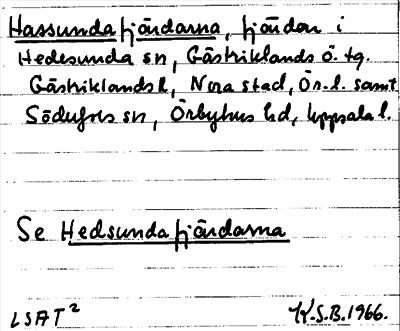 Hassundafjärdarna, fjärdar i
Hedesunda sn, Gästriklands ö. tg.
Gästriklands l, Nora stad, Ör. l. samt
Söderfors sn, Örbyhus hd, Uppsala l.
Se Hedsundafjärdarna
LSAT 2 K.S.B. 1966.